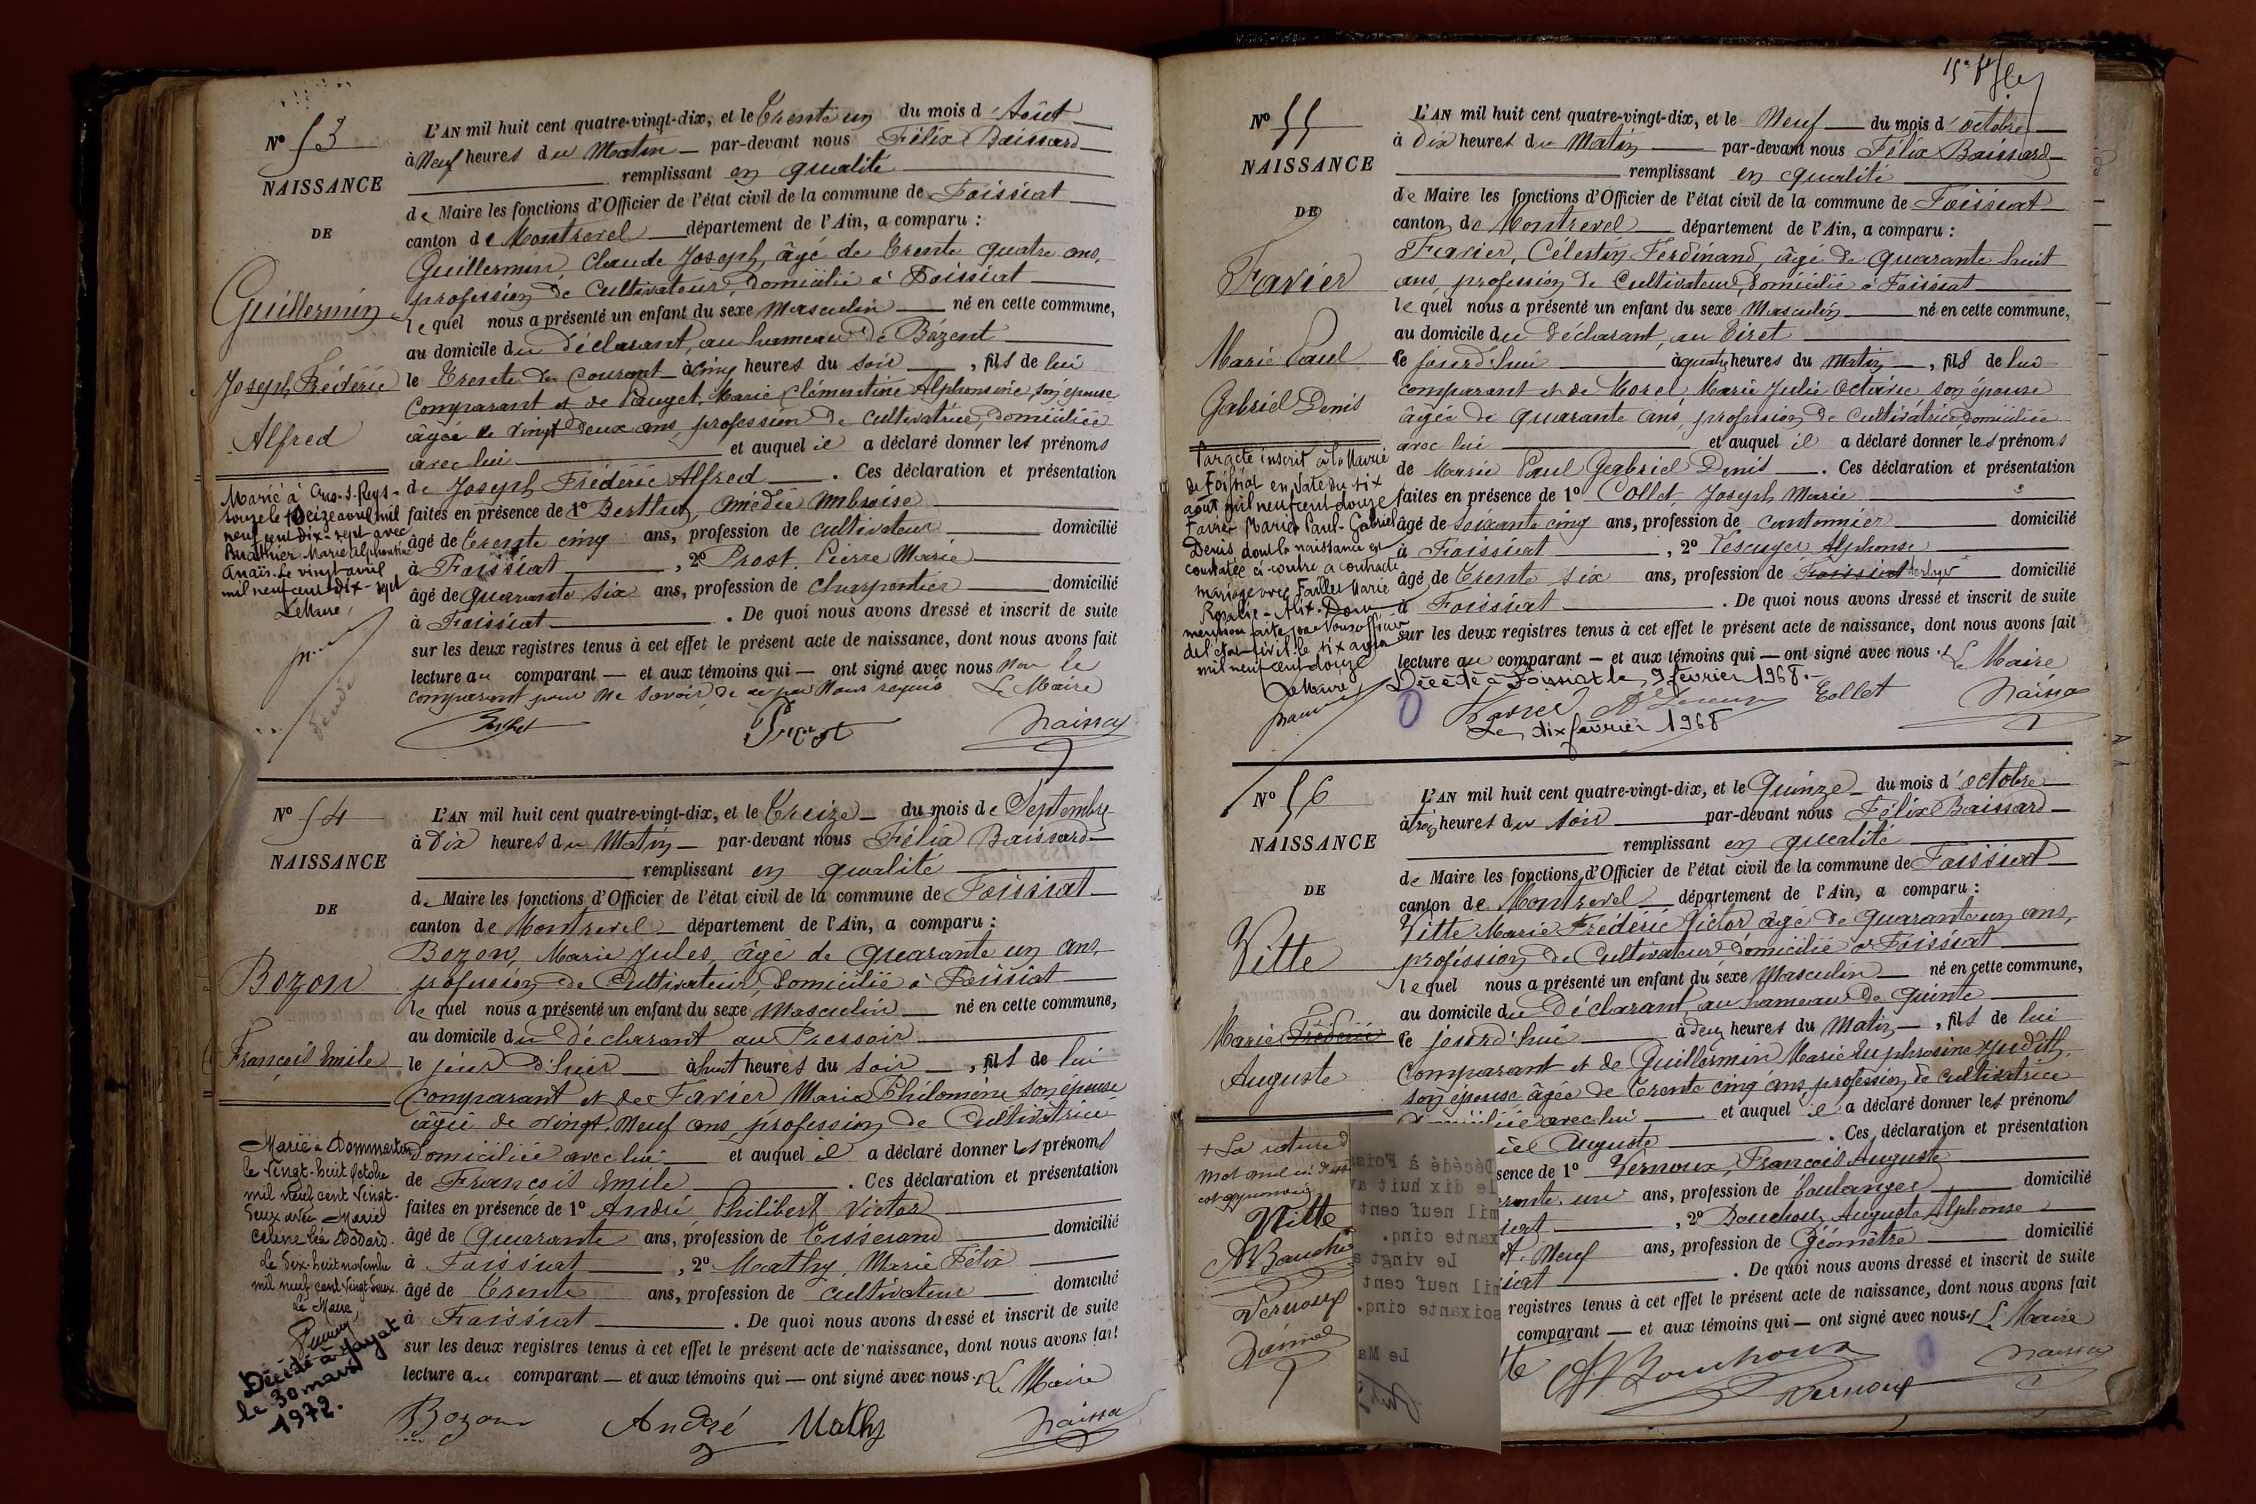 Nº 53
NAISSANCE
DE
Guillermin
Joseph Frédéric
Alfred
Marié à
le seize avril mil
neuf cent dix-sept avec
Marie Alphonsine
Anaïs. Le vingt avril
mil neuf cent dix-sept
Le Maire,
L'AN mil huit cent quatre-vingt-dix, et le Trente un du mois d'Août
à Neuf heures du Matin par-devant nous Félix Baissard
remplissant en qualité
de Maire les fonctions d'Officier de l'état civil de la commune de Foissiat
canton de Montrevel département de l'Ain, a comparu :
Guillermin, Claude Joseph, âgé de Trente quatre ans,
profession de Cultivateur, domicilié à Foissiat
lequel nous a présenté un enfant du sexe Masculin né en cette commune,
au domicile du déclarant, au hameau de Bézent
le Trente du courant à cinq heures du soir, fils de lui
comparant et de Pauget, Marie Clémentine Alphonsine, son épouse
âgée de vingt deux ans, profession de cultivatrice, domiciliée
avec lui et auquel il a déclaré donner les prénoms
de Joseph Frédéric Alfred. Ces déclaration et présentation
faites en présence de 1º Berthet, Amédée Ambroise
âgé de Trente cinq ans, profession de cultivateur domicilié
à Foissiat, 2º Prost, Pierre Marie
âgé de quarante six ans, profession de Charpentier domicilié
à Foissiat. De quoi nous avons dressé et inscrit de suite
sur les deux registres tenus à cet effet le présent acte de naissance, dont nous avons fait
lecture au comparant et aux témoins qui ont signé avec nous non le
comparant pour ne savoir de ce par Nous requis Le Maire
Prost
Nº 54
NAISSANCE
DE
Bozon
François Emile
Marié à Dommartin
le vingt-huit Octobre
mil neuf cent vingt-
deux avec Marie
Celine Léa Dodard.
Le dix-huit novembre
mil neuf cent vingt deux.
Le Maire,
Décédé à Jayat
le 30 mars
1972.
L'AN mil huit cent quatre-vingt-dix, et le Treize du mois de Septembre
à Dix heures du Matin par-devant nous Félix Baissard
remplissant en qualité
de Maire les fonctions d'Officier de l'état civil de la commune de Foissiat
canton de Montrevel département de l'Ain, a comparu :
Bozon, Marie Jules, âgé de quarante un ans,
profession de Cultivateur, domicilié à Foissiat
lequel nous a présenté un enfant du sexe Masculin né en cette commune,
au domicile du déclarant au Pressoir
le jour d'hier à huit heures du soir, fils de lui
comparant et de Favier Marie Philomène son épouse
âgée de vingt neuf ans, profession de Cultivatrice
domiciliée avec lui et auquel il a déclaré donner les prénoms
de François Emile. Ces déclaration et présentation
faites en présence de 1º André Philibert Victor
âgé de Quarante ans, profession de Tisserand domicilié
à Foissiat, 2º Mathy, Marie Félix
âgé de Trente ans, profession de cultivateur domicilié
à Foissiat. De quoi nous avons dressé et inscrit de suite
sur les deux registres tenus à cet effet le présent acte de naissance, dont nous avons fait
lecture au comparant et aux témoins qui ont signé avec nous. Le Maire
Bozon André Mathy
Nº 55
NAISSANCE
DE
Favier
Marie Paul
Gabriel Denis
Par acte inscrit à la Mairie
de Foissiat en date du six
août mil neuf cent douze
Favier Marie-Paul-Gabriel
Denis, dont la naissance est
constatée ci-contre a contracté
mariage avec Faillet Marie
Rosalie-Alix. Dont
mention faite par Nous officier
de l'état-civil le six août
mil neuf cent douze
Le Maire,
L'AN mil huit cent quatre-vingt-dix, et le Neuf du mois d'octobre
à Dix heures du Matin par-devant nous Félix Baissard
remplissant en qualité
de Maire les fonctions d'Officier de l'état civil de la commune de Foissiat
canton de Montrevel département de l'Ain, a comparu :
Favier, Célestin Ferdinand, âgé de quarante huit
ans, profession de Cultivateur, domicilié à Foissiat
lequel nous a présenté un enfant du sexe Masculin né en cette commune,
au domicile du déclarant, au Tiret
le jourd'hui à quatre heures du Matin, fils de lui
comparant et de Morel, Marie Julie Octavie son épouse
âgée de quarante ans, profession de Cultivatrice, domiciliée
avec lui et auquel il a déclaré donner les prénoms
de Marie Paul Gabriel Denis. Ces déclaration et présentation
faites en présence de 1º Collet Joseph Marie
âgé de soixante cinq ans, profession de cantonnier domicilié
à Foissiat, 2º Lescuyer Alphonse
âgé de Trente six ans, profession de Foissiat domicilié
à Foissiat. De quoi nous avons dressé et inscrit de suite
sur les deux registres tenus à cet effet le présent acte de naissance, dont nous avons fait
lecture au comparant et aux témoins qui ont signé avec nous. Le Maire
Décédé à Foissiat le 9 février 1968.
Favier Collet
Le dix février 1968
Nº 56
NAISSANCE
DE
Vitte
Marie Frédéric
Auguste
+ La rature d
mot nul ci-dessus
est approuvée
Vitte
Vernoux
L'AN mil huit cent quatre-vingt-dix, et le Quinze du mois d'octobre
à trois heures du soir par-devant nous Félix Baissard
remplissant en qualité
de Maire les fonctions d'Officier de l'état civil de la commune de Foissiat
canton de Montrevel département de l'Ain, a comparu :
Vitte Marie Frédéric Victor âgé de quarante un ans,
profession de Cultivateur domicilié à Foissiat
lequel nous a présenté un enfant du sexe Masculin né en cette commune,
au domicile du Déclarant, au hameau de Quinte
le jourd'hui à deux heures du Matin, fils de lui
comparant et de Guillermin Marie Euphrosine Judith,
son épouse âgée de Trente cinq ans profession de cultivatrice
domiciliée avec lui et auquel il a déclaré donner les prénoms
Auguste. Ces déclaration et présentation
sence de 1º Vernoux, François Auguste
rante un ans, profession de boulanger domicilié
siat, 2º Bouchoux Auguste Alphonse
Neuf ans, profession de Géomètre domicilié
siat. De quoi nous avons dressé et inscrit de suite
registres tenus à cet effet le présent acte de naissance, dont nous avons fait
comparant et aux témoins qui ont signé avec nous. Le Maire
Bouchoux Vernoux
Décédé à Fois
le dix huit av
mil neuf cent
xante cinq.
Le vingt a
mil neuf cent
soixante cinq.
Le Ma